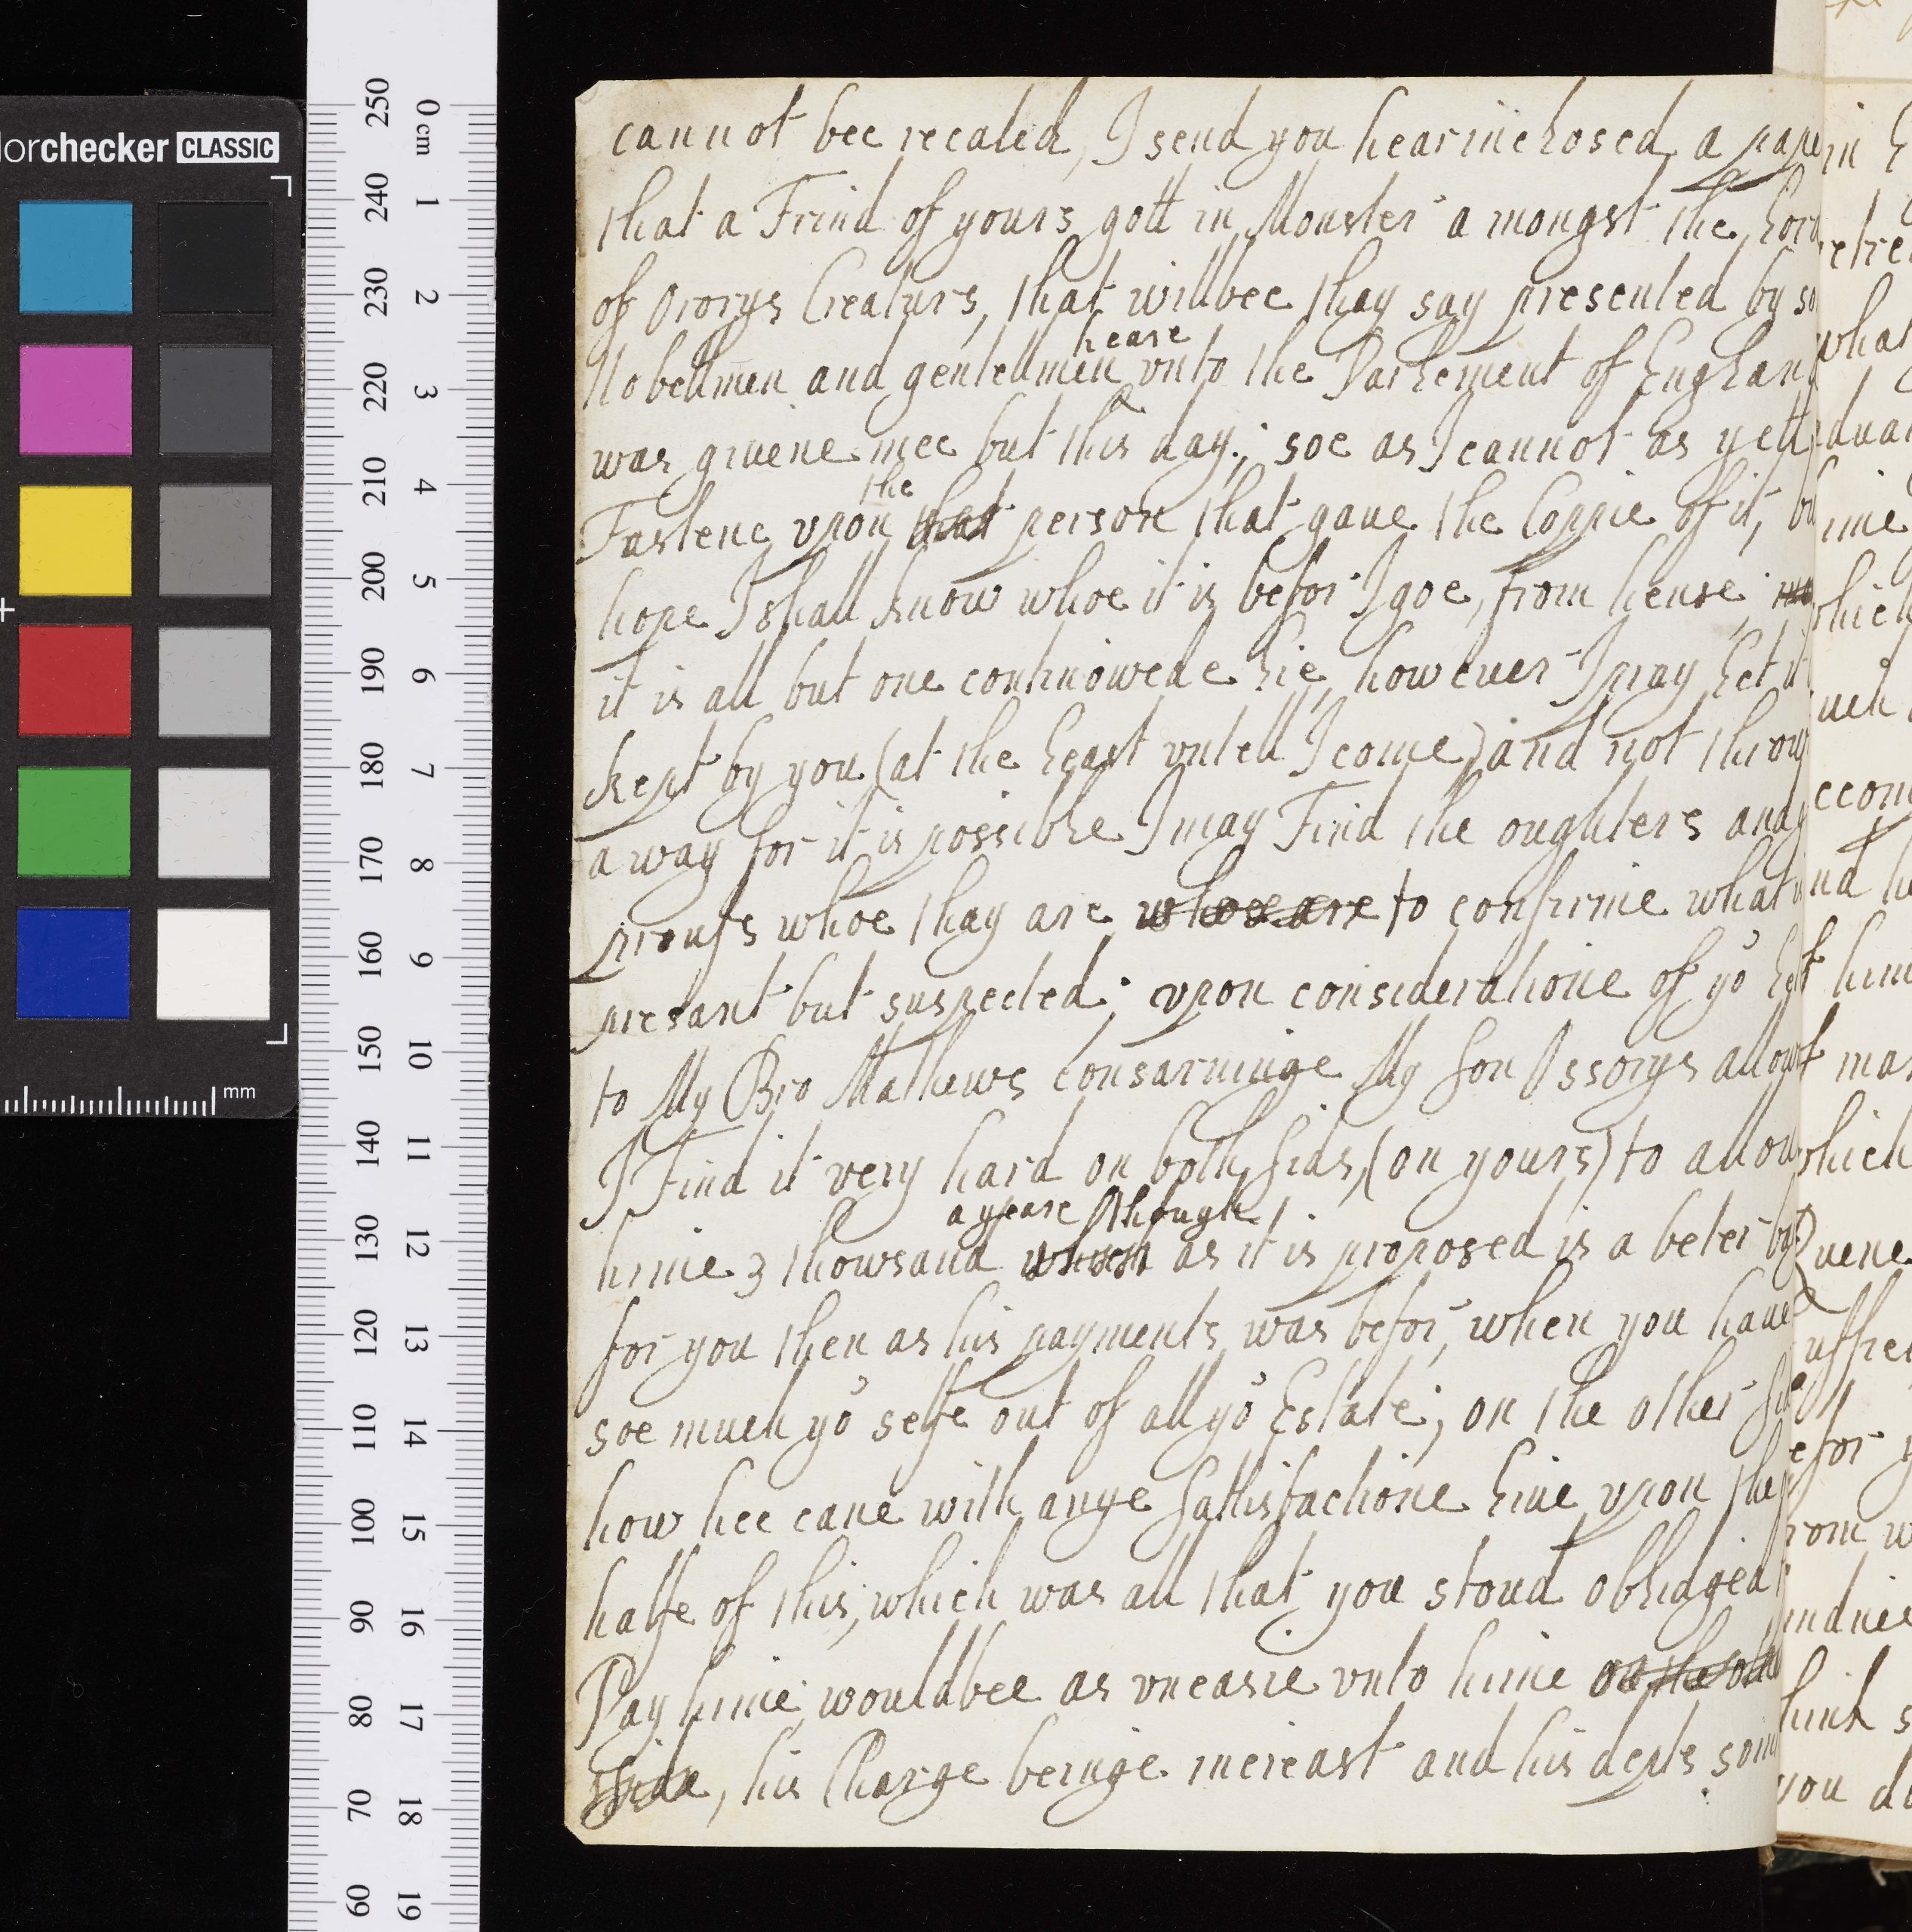 cannot bee recaled, I send you hearinclosed a pape
that a Frind of yours gott in Monster a mongst the Lor
of Ororys Creaturs, that willbee thay say presented by so
Nobellmen and gentellmen heare vnto the Parlement of Englan
was giuene mee but this day; soe as I cannot as yett
Fastene vpon the that person that gaue the Coppie of it, bu
hope I shall know whoe it is befor I goe, from hense;
it is all but one contniowede lie, however I pray let it
kept by you (at the least vntell I come) and not throw
a way for it is possible I may Find the oughters and
proufs whoe thay are whoe are to confirme what
presant but suspected; vpon consideratione of yor let
to My Bro Mathews Consarninge My Son Ossorys allow
I Find it very hard on both Sids, (on yours) to allow
hime 3 thowsand a yeare Although which as it is proposed is a beter by
for you then as his payments was befor, when you haue
soe much yor selfe out of all yor Estate; on the other Sid
how hee cane with anye Sattisfactione liue vpon the
halfe of this, which was all that you stoud oblidged
Pay hime, wouldbee as vneasie vnto hime on the other
Side, his Charge beinge increast and his depts som
0 cm 1 2 3 4 5 6 7 8 9 10 11 12 13 14 15 16 17 18 19
250 240 230 220 210 200 190 180 170 160 150 140 130 120 110 100 90 80 70 60
lorchecker CLASSIC
mm
what
ine
hich
uch
econ
nd
him
mar
hich
uene
uffre
efor
rom
indnes
hink
you